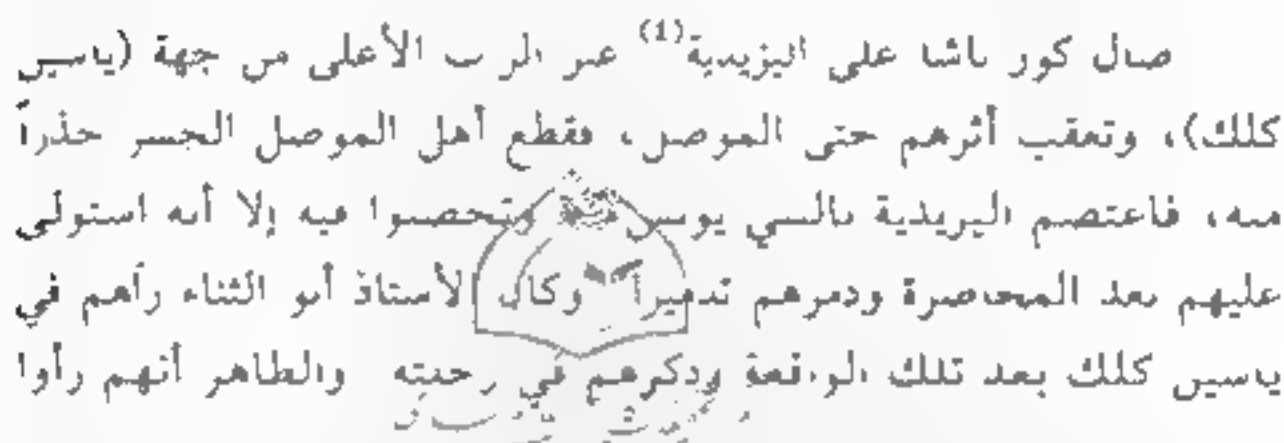 صال كور باشا على اليزيدية(1) عبر الزاب الأعلى من جهة (ياسين
كلك)، وتعقب أثرهم حتى الموصل، فقطع أهل الموصل الجسر حذراً
منه، فاعتصم اليزيدية بالنبي يونس وتحصنوا فيه إلا أنه استولى
عليهم بعد المحاصرة ودمرهم تدميراً وكان الأستاذ أبو الثناء رآهم في
ياسين كلك بعد تلك الواقعة وذكرهم في رحلته والظاهر أنهم رأوا